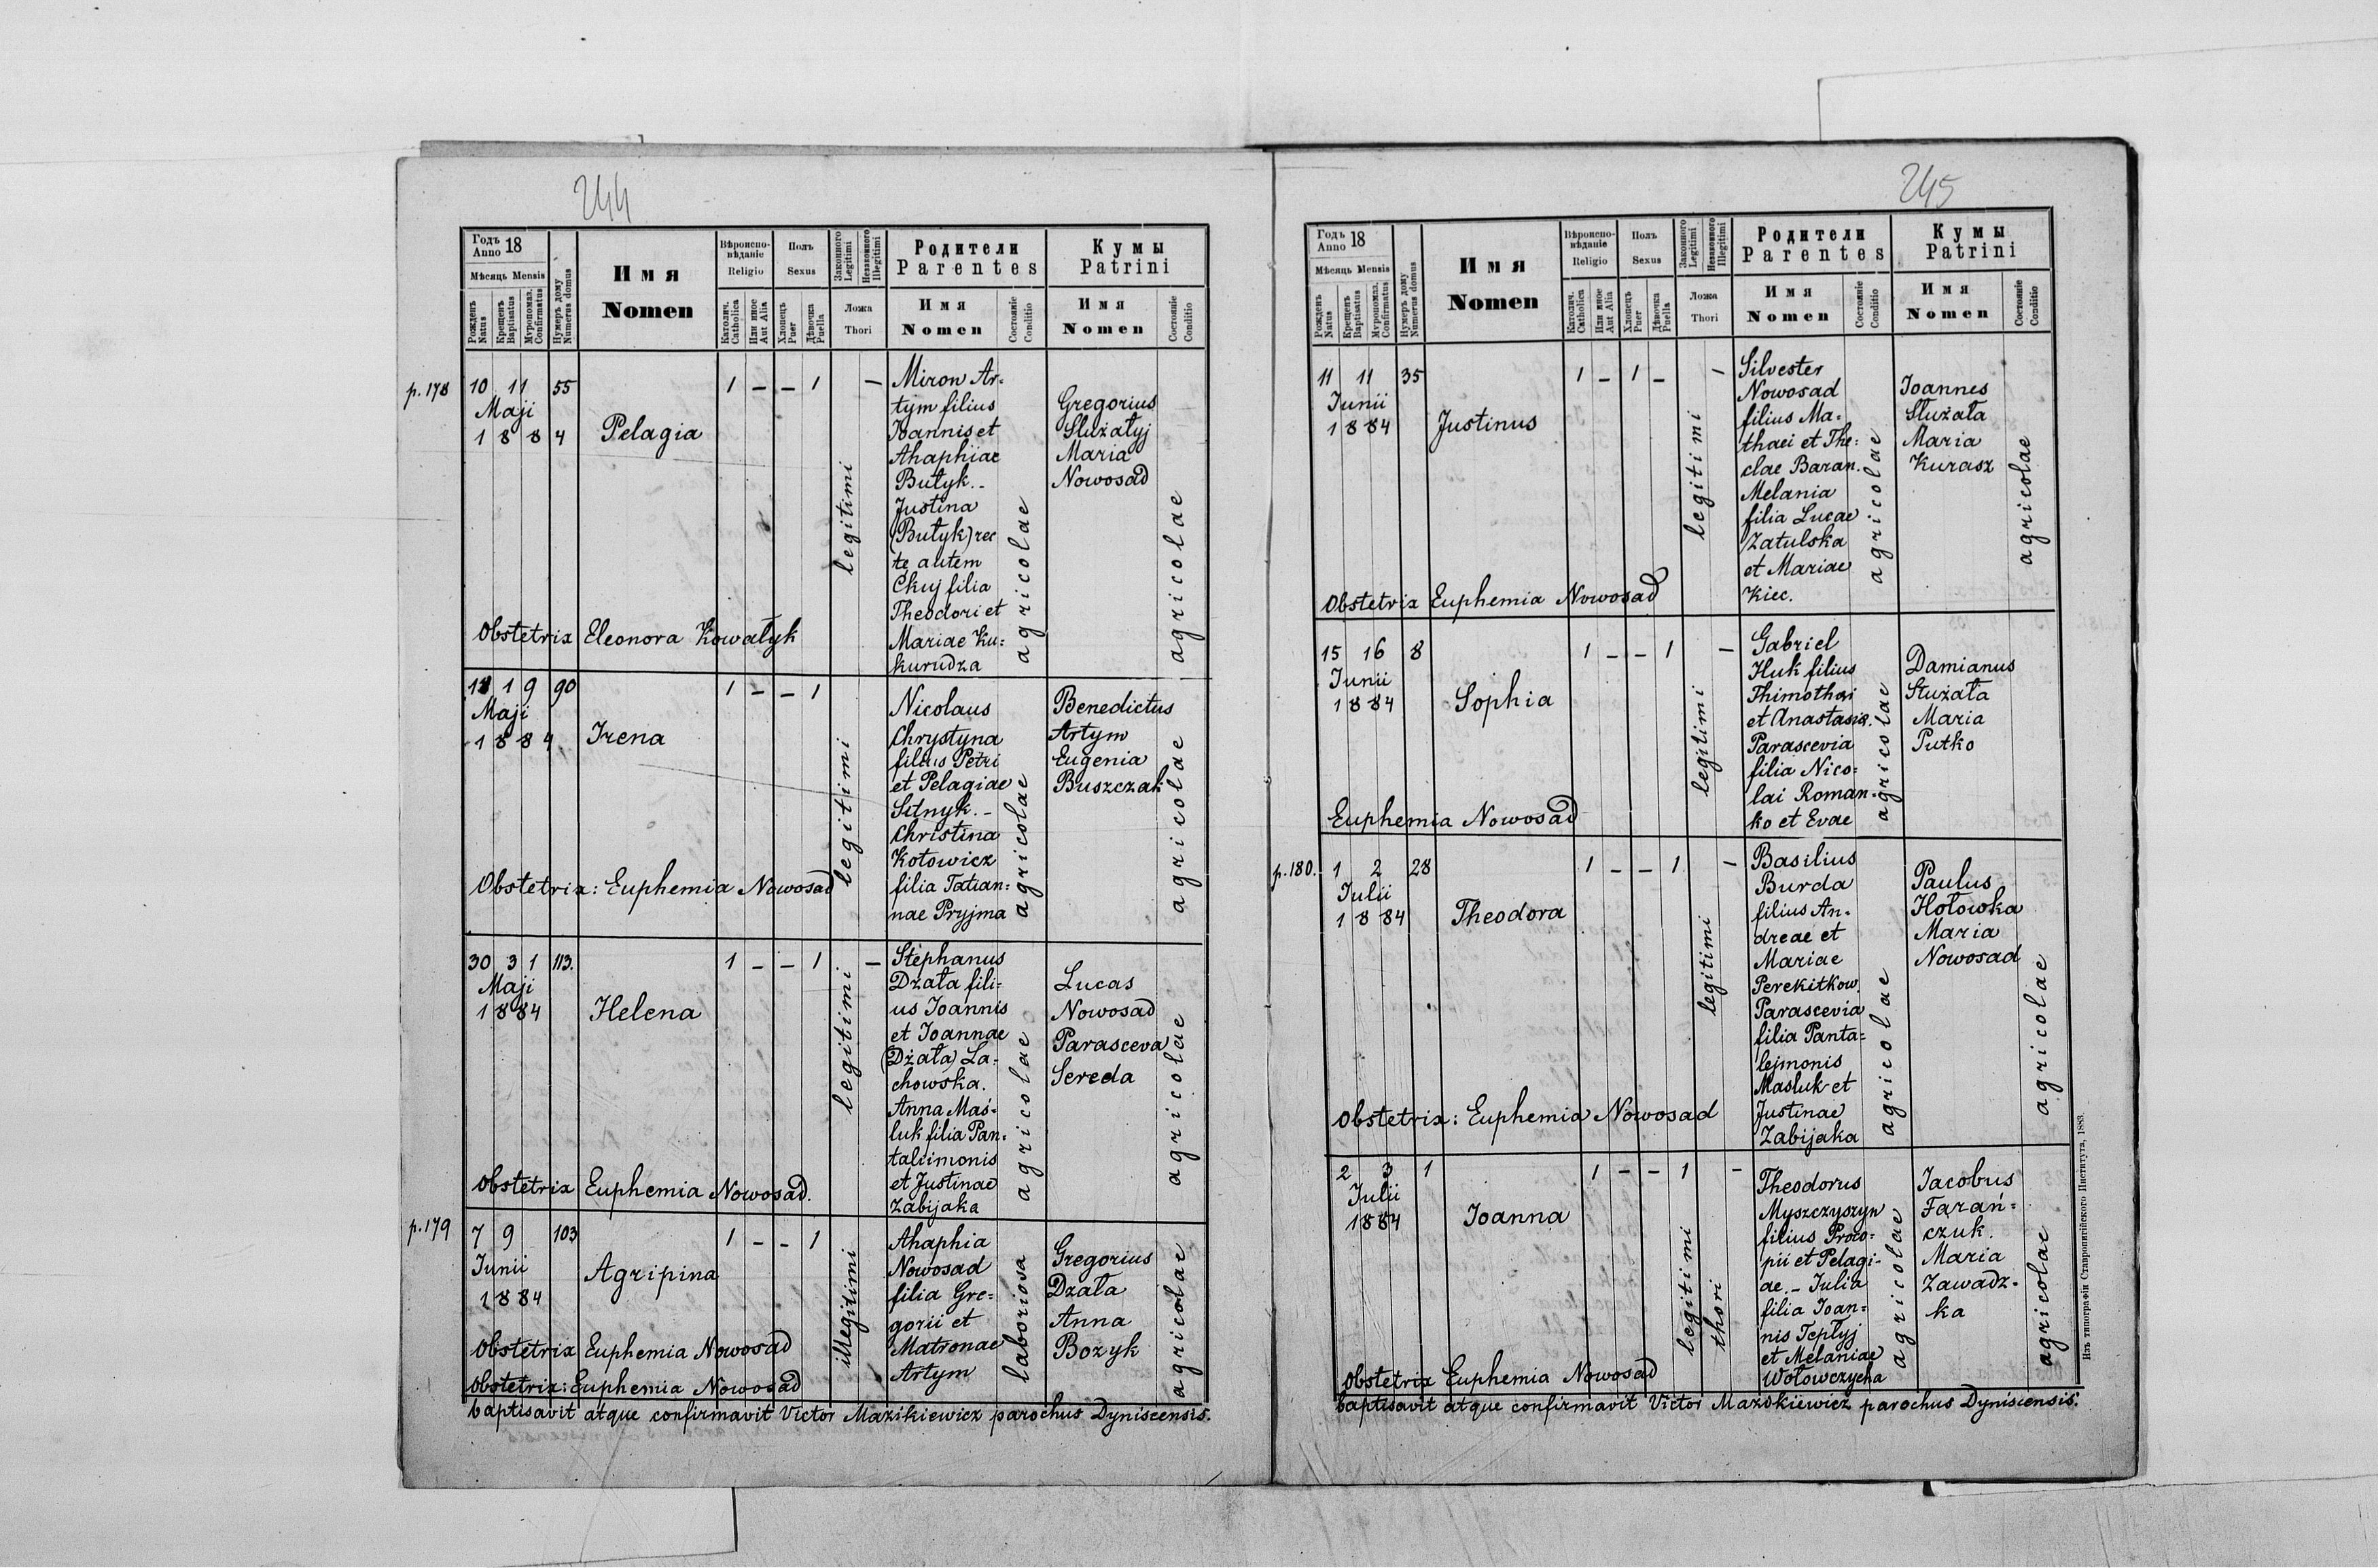 244
Годъ Anno 18
Мѣсяць Mensis
Рожденъ Natus
Крещенъ Baptisatus
Муропомаз. Confirmatus
Нумеръ дому Numerus domus
Имя Nomen
Вѣроиспо-вѣданіе Religio
Католич. Catholica
Или иное Aut Alia
Полъ Sexus
Хлопець Puer
Дѣвочка Puella
Законного Legitimi
Незаконного Illegitimi
Ложа Thori
Родители Parentes
Имя Nomen
Состояніе Conditio
Кумы Patrini
Имя Nomen
Состояніе Conditio
p. 178
10 11 55
Maji
1884
Pelagia
1 – – 1 –
legitimi
Miron Ar=
tym filius
Joannis et
Ahaphiae
Butyk. –
Justina
(Butyk) rec
te autem
Ckuj filia
Theodori et
Mariae Ku=
kurudza
agricolae
Gregorius
Służatyj
Maria
Nowosad
agricolae
Obstetrix Eleonora Kowałyk
19 90
Maji
1884
Irena
1 – – 1
legitimi
Nicolaus
Chrystyna
filius Petri
et Pelagiae
Sitnyk. –
Christina
Kotowicz
filia Tatian=
nae Pryjma
agricolae
Benedictus
Artym
Eugenia
Buszczak
agricolae
Obstetrix: Euphemia Nowosad
30 31 113.
Maji
1884
Helena
1 – – 1 –
legitimi
Stephanus
Dzała fili=
us Joannis
et Joannae
(Dżała) La=
chowska.
Anna Maś=
luk filia Pan=
taleimonis
et Justinae
Zabijaka
agricolae
Lucas
Nowosad
Parasceva
Sereda
agricolae
Obstetrix Euphemia Nowosad.
p. 179
7 9 103
Junii
1884
Agripina
1 – – 1
illegitimi
Ahaphia
Nowosad
filia Gre=
gorii et
Matronae
Artym
laboriosa
Gregorius
Dzała
Anna
Bozyk
agricolae
Obstetrix Euphemia Nowosad
Obstetrix: Euphemia Nowosad
baptisavit atque confirmavit Victor Mazikiewicz parochus Dyniscensis.
245
Годъ Anno 18
Мѣсяць Mensis
Рожденъ Natus
Крещенъ Baptisatus
Муропомаз. Confirmatus
Нумеръ дому Numerus domus
Имя Nomen
Вѣроиспо-вѣданіе Religio
Католич. Catholica
Или иное Aut Alia
Полъ Sexus
Хлопець Puer
Дѣвочка Puella
Законного Legitimi
Незаконного Illegitimi
Ложа Thori
Родители Parentes
Имя Nomen
Состояніе Conditio
Кумы Patrini
Имя Nomen
Состояніе Conditio
11 11 35
Junii
1884
Justinus
1 – 1 – –
legitimi
Silvester
Nowosad
filius Ma=
thaei et The=
clae Baran.
Melania
filia Lucae
Zatulska
et Mariae
Kiec.
agricolae
Joannes
Służała
Maria
Kurasz
agricolae
Obstetrix Euphemia Nowosad
15 16 8
Junii
1884
Sophia
1 – – 1 –
legitimi
Gabriel
Huk filius
Thimothei
et Anastasia.
Parascevia
filia Nico=
lai Roman=
ko et Evae
agricolae
Damianus
Służała
Maria
Putko
Euphemia Nowosad
p. 180.
1 2 28
Julii
1884
Theodora
1 – – 1 –
legitimi
Basilius
Burda
filius An=
dreae et
Mariae
Perekitkow.
Parascevia
filia Panta=
lejmonis
Masluk et
Justinae
Zabijaka
agricolae
Paulus
Hołowka
Maria
Nowosad
agricolae
Obstetrix: Euphemia Nowosad
2 3 1
Julii
1884
Joanna
1 – – 1 –
legitimi thori
Theodorus
Myszczyszyn
filius Proco=
pii et Pelagi=
ae. – Julia
filia Joan=
nis Tepłyj
et Melaniae
Wołowczycha
agricolae
Jacobus
Farań=
czuk.
Maria
Zawadz=
ka
agricolae
Obstetrix Euphemia Nowosad
baptisavit atque confirmavit Victor Mazikiewicz parochus Dyniscensis.
Изъ типографіи Ставропигійского Института, 1883.